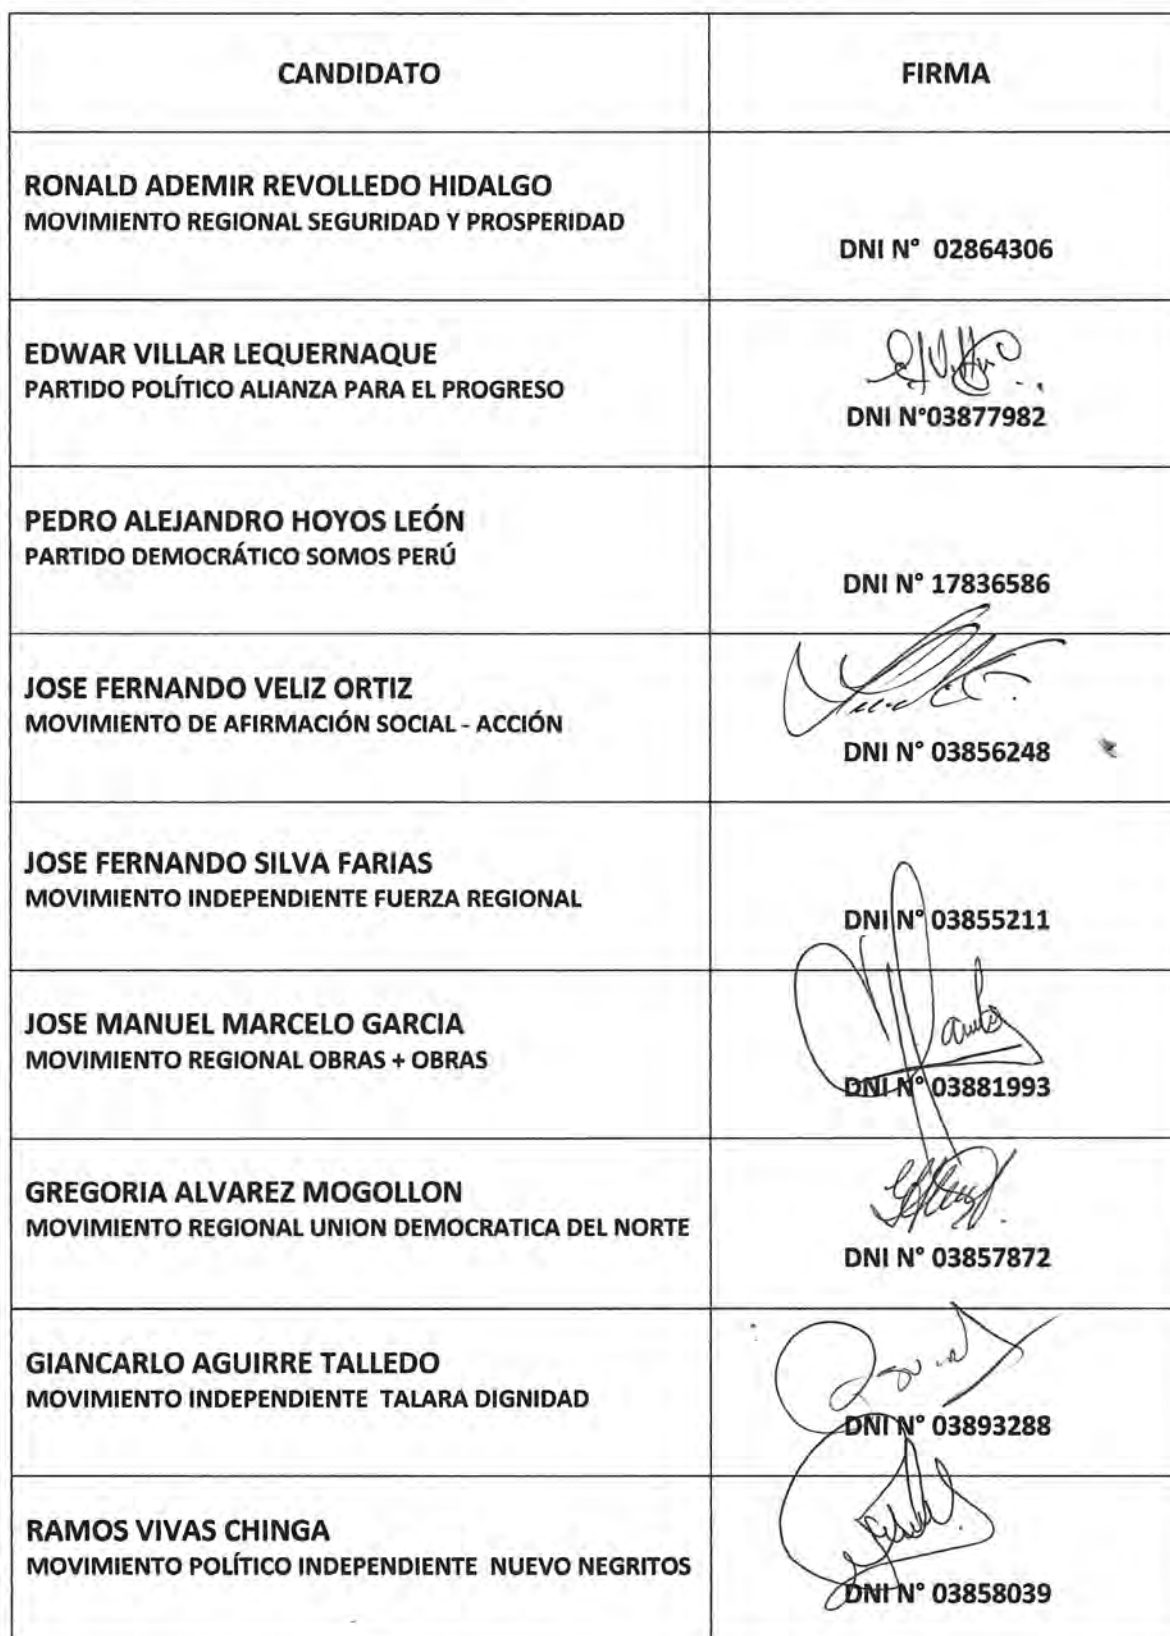 CANDIDATO
FIRMA
RONALD ADEMIR REVOLLEDO HIDALGO
MOVIMIENTO REGIONAL SEGURIDAD Y PROSPERIDAD
DNI N° 02864306
EDWAR VILLAR LEQUERNAQUE
PARTIDO POLÍTICO ALIANZA PARA EL PROGRESO
DNI N°03877982
PEDRO ALEJANDRO HOYOS LEÓN
PARTIDO DEMOCRÁTICO SOMOS PERÚ
DNI N° 17836586
JOSE FERNANDO VELIZ ORTIZ
MOVIMIENTO DE AFIRMACIÓN SOCIAL - ACCIÓN
DNI N° 03856248
JOSE FERNANDO SILVA FARIAS
MOVIMIENTO INDEPENDIENTE FUERZA REGIONAL
DNI N° 03855211
JOSE MANUEL MARCELO GARCIA
MOVIMIENTO REGIONAL OBRAS + OBRAS
DNI N° 03881993
GREGORIA ALVAREZ MOGOLLON
MOVIMIENTO REGIONAL UNION DEMOCRATICA DEL NORTE
DNI N° 03857872
GIANCARLO AGUIRRE TALLEDO
MOVIMIENTO INDEPENDIENTE TALARA DIGNIDAD
DNI N° 03893288
RAMOS VIVAS CHINGA
MOVIMIENTO POLÍTICO INDEPENDIENTE NUEVO NEGRITOS
DNI N° 03858039